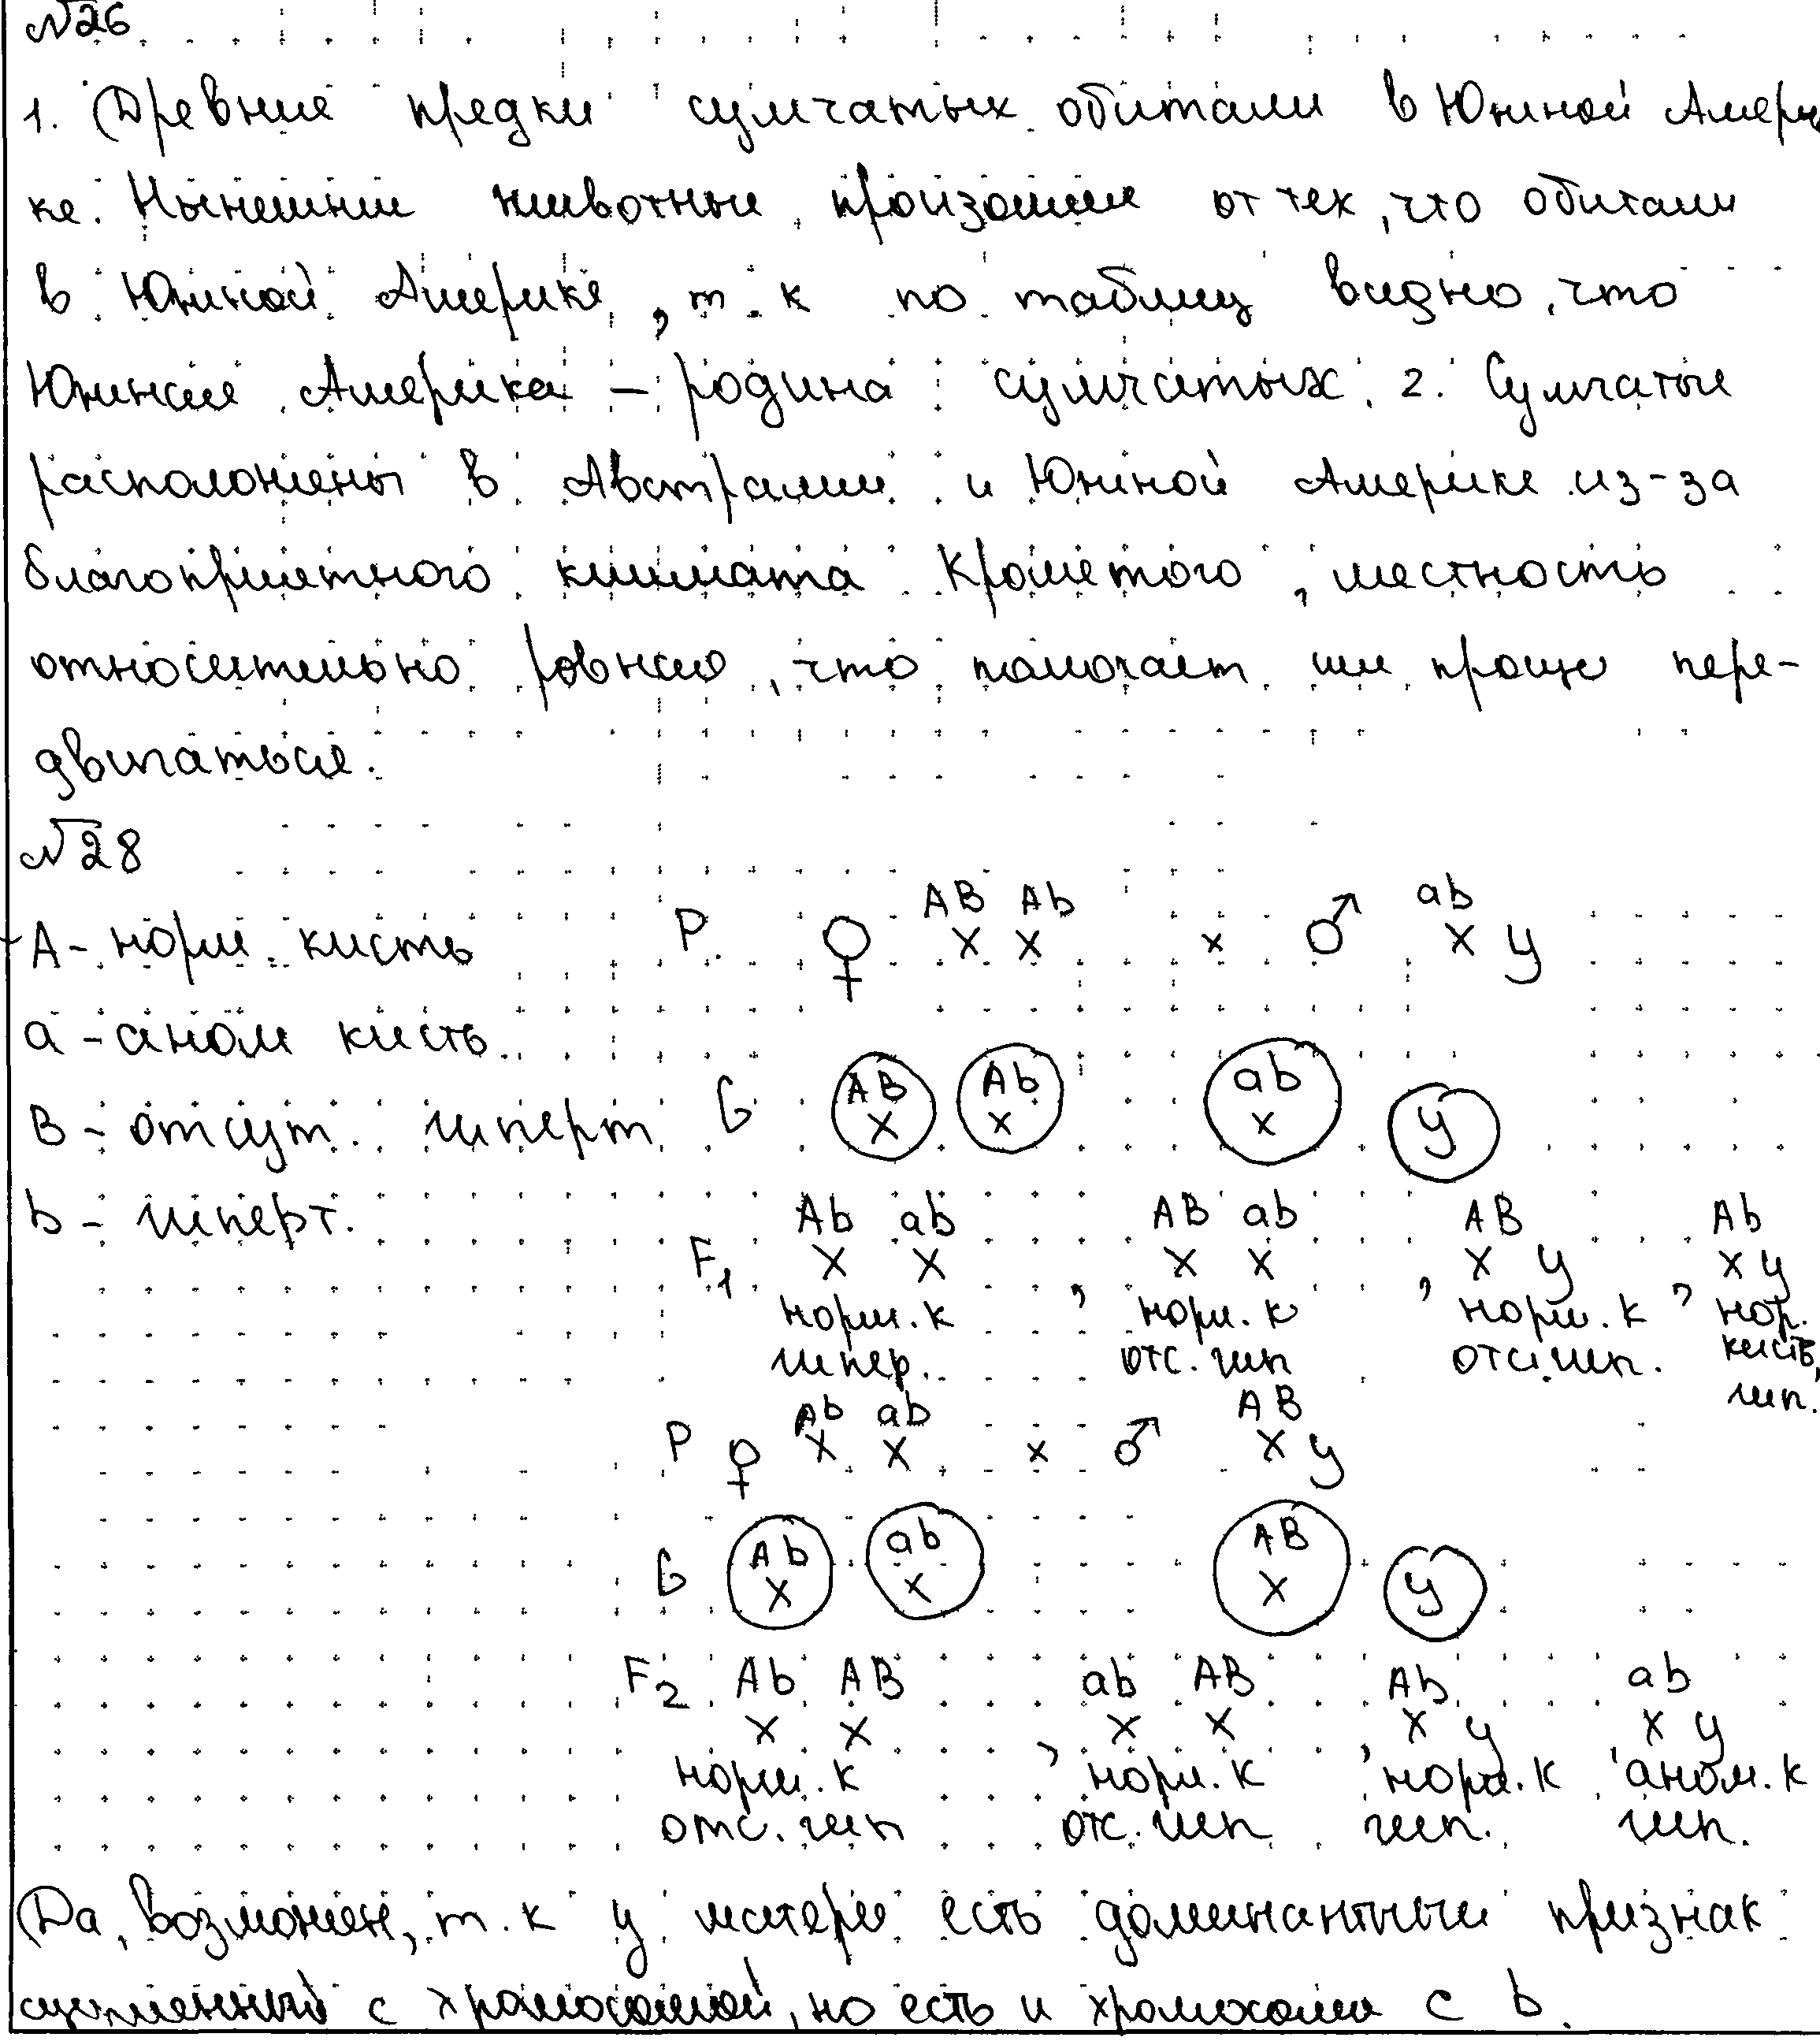 №26
1. Древние предки сумчатых обитали в Южной Амери
ке. Нынешние животные произошли от тех, что обитали
в Южной Америке, т. к по таблиц видно, что
Южная Америка – родина сумчатых. 2. Сумчатые
расположены в Австралии и Южной Америке из-за
благоприятного климата Крометого, местность
относительно ровная, что помогает им проще пере-
двигаться.
№28
A - норм. кисть P ♀ X^AB X^Ab x ♂ X^ab У
a - аном кисть
B - отсут. гиперт. G X^AB X^Ab X^ab У
b - гиперт.
F1 X^Ab X^ab , X^AB X^ab , X^AB У , X^Ab У
норм. к норм. к норм. к нор.
гипер. отс. гип отс. гип. кисть,
гип.
P ♀ X^Ab X^ab x ♂ X^AB У
G X^Ab X^ab X^AB У
F2 X^Ab X^AB , X^ab X^AB , X^Ab У , X^ab У
норм. к норм. к норм. к аном. к
отс. гип отс. гип гип. гип.
Да, возможен, т. к у матери есть доминантный признак
сцепленный с хромосомой, но есть и хромосома с b.